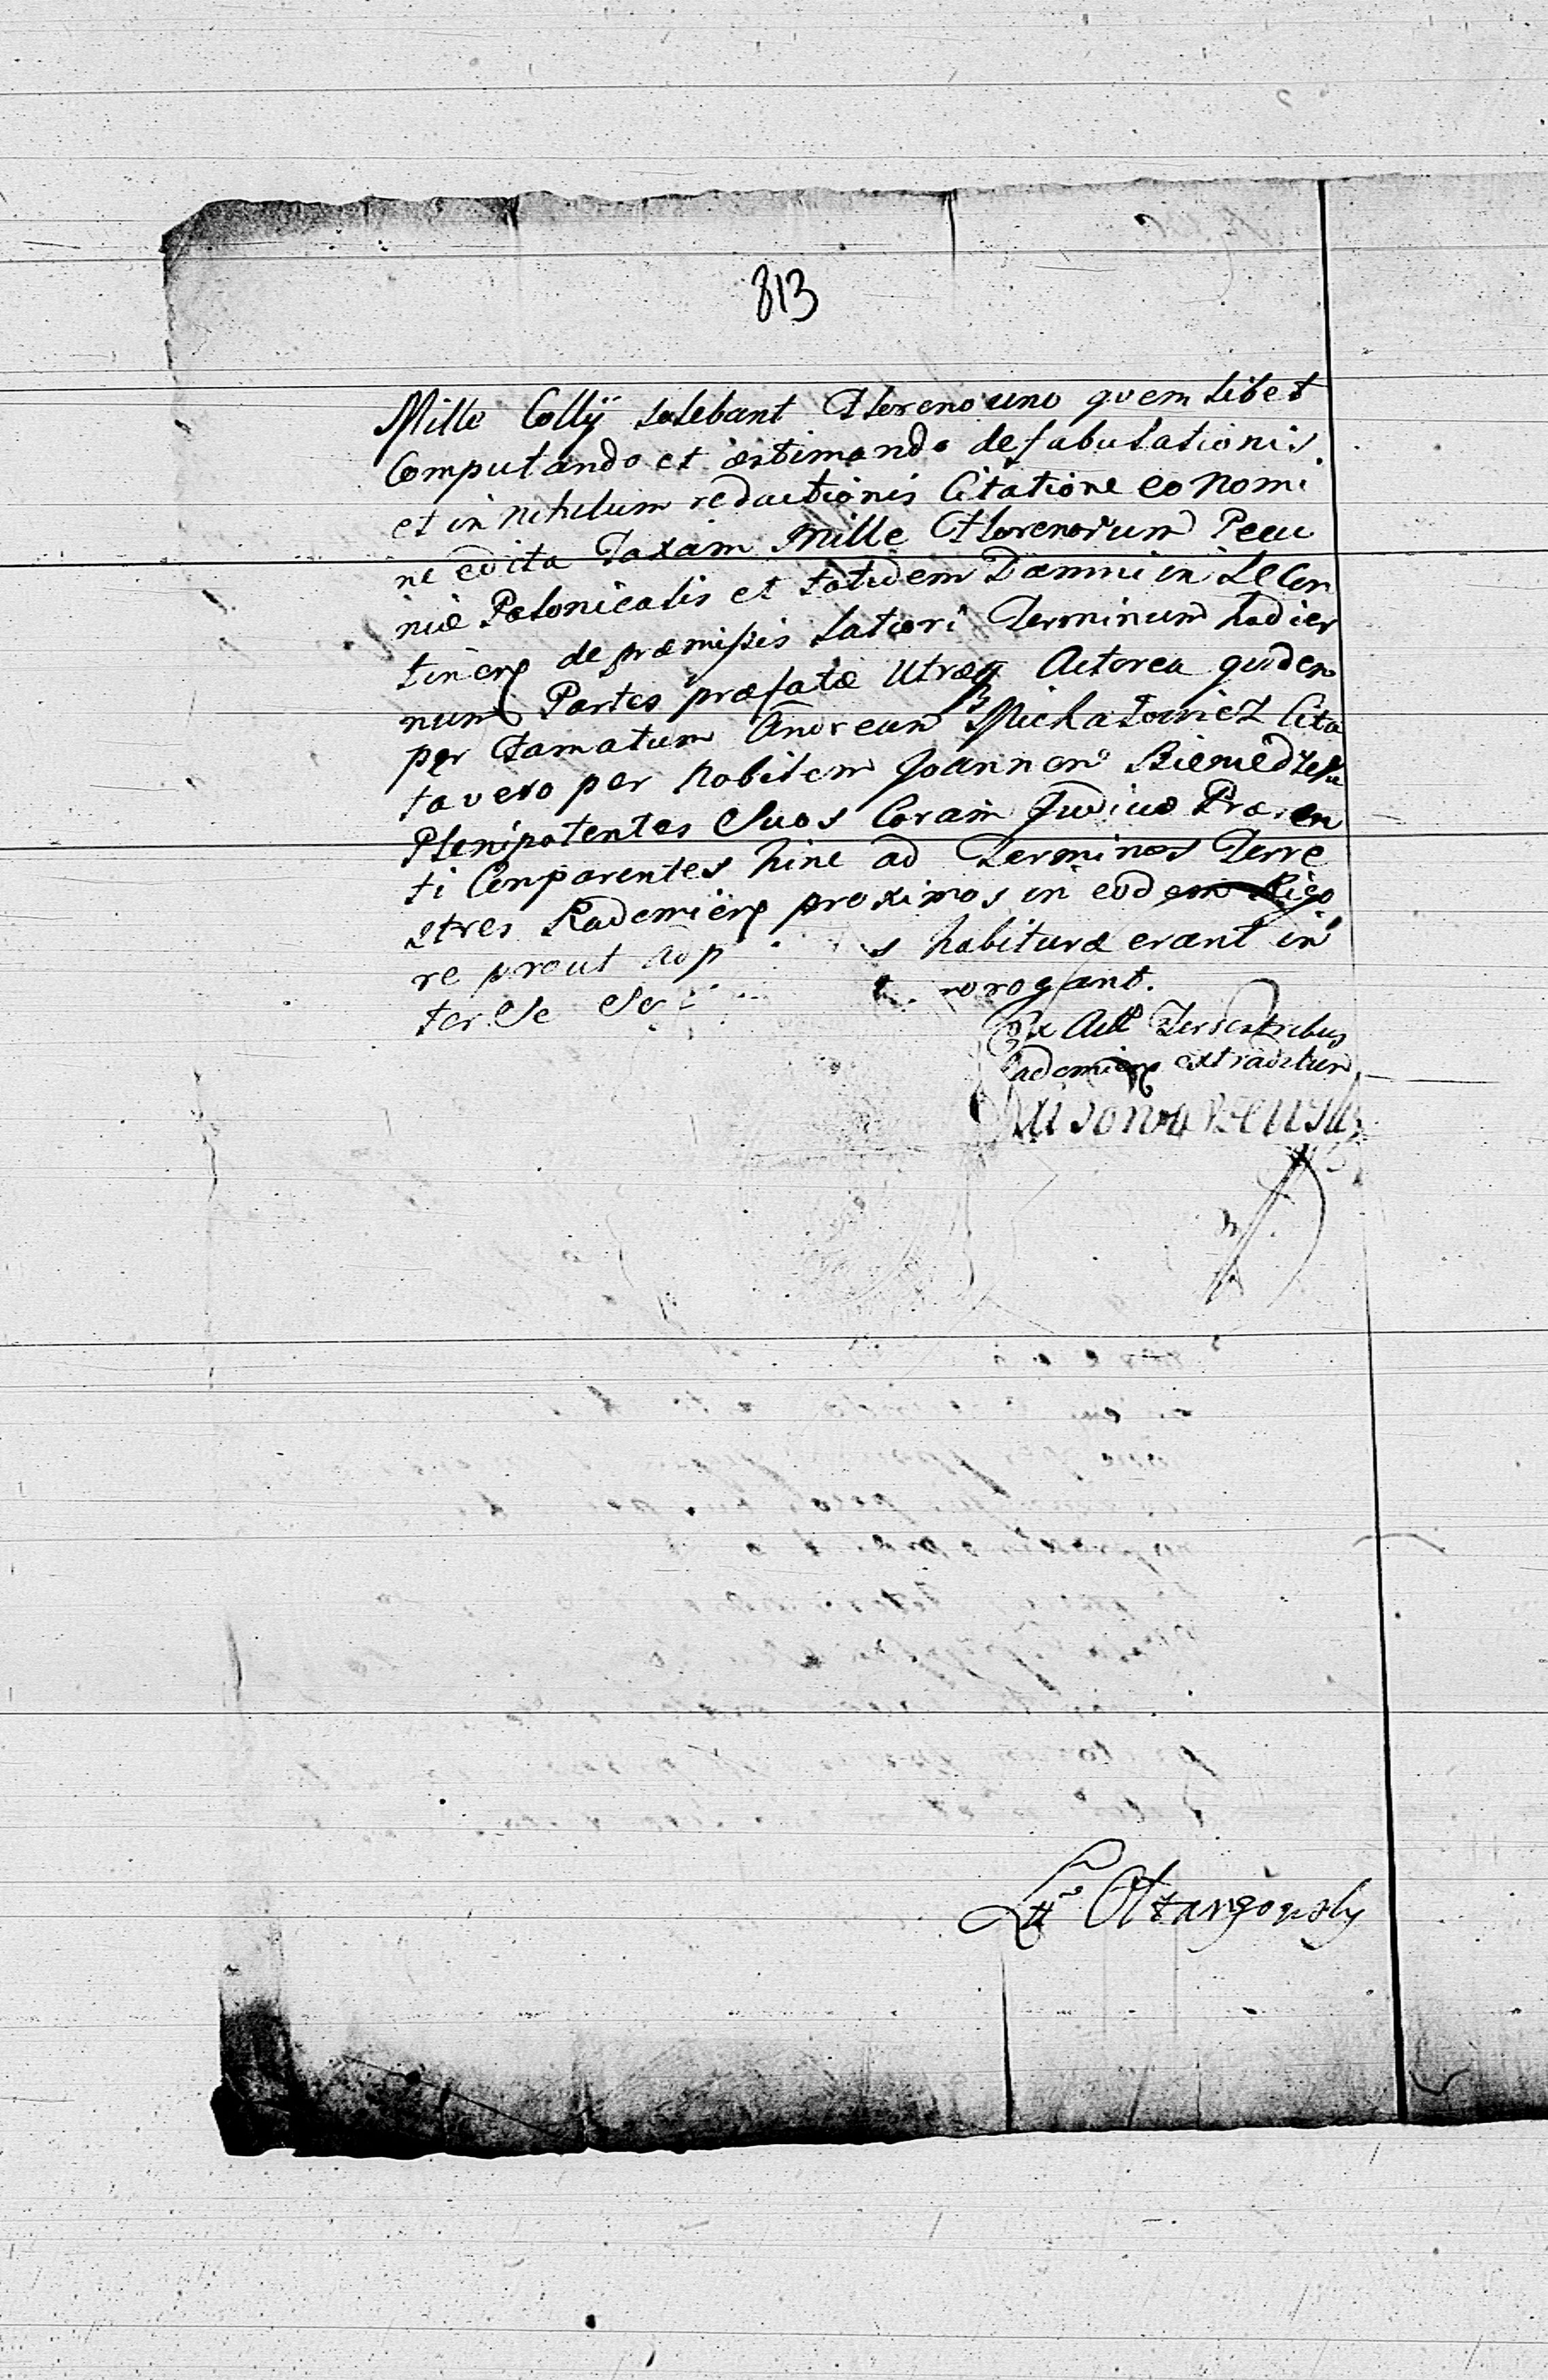 813
Mille Collÿ solebant Floreno uno quem libet
Computando et æstimando desabulationis
et in nihilum redactionis Citatione eo nomi
ne edita Taxam Mille Florenorum Pecu
niæ Polonicalis et totidem Damni in Se Con
tinen de præmissis latiori Terminum hodier
num Partes præfatæ Utræq Actorea quidem
per Famatum Andream Michałowicz Cita
ta vero per Nobilem Joannem
Plenipotentes Suos Coram Judicio Præsen
ti Comparentes hinc ad Terminos Terre
stres Radomien proximos in eodem Rigo
re prout s habituræ erant in
ter Se rogant.
Ex Actis Terrestribus
Radomien extraditum